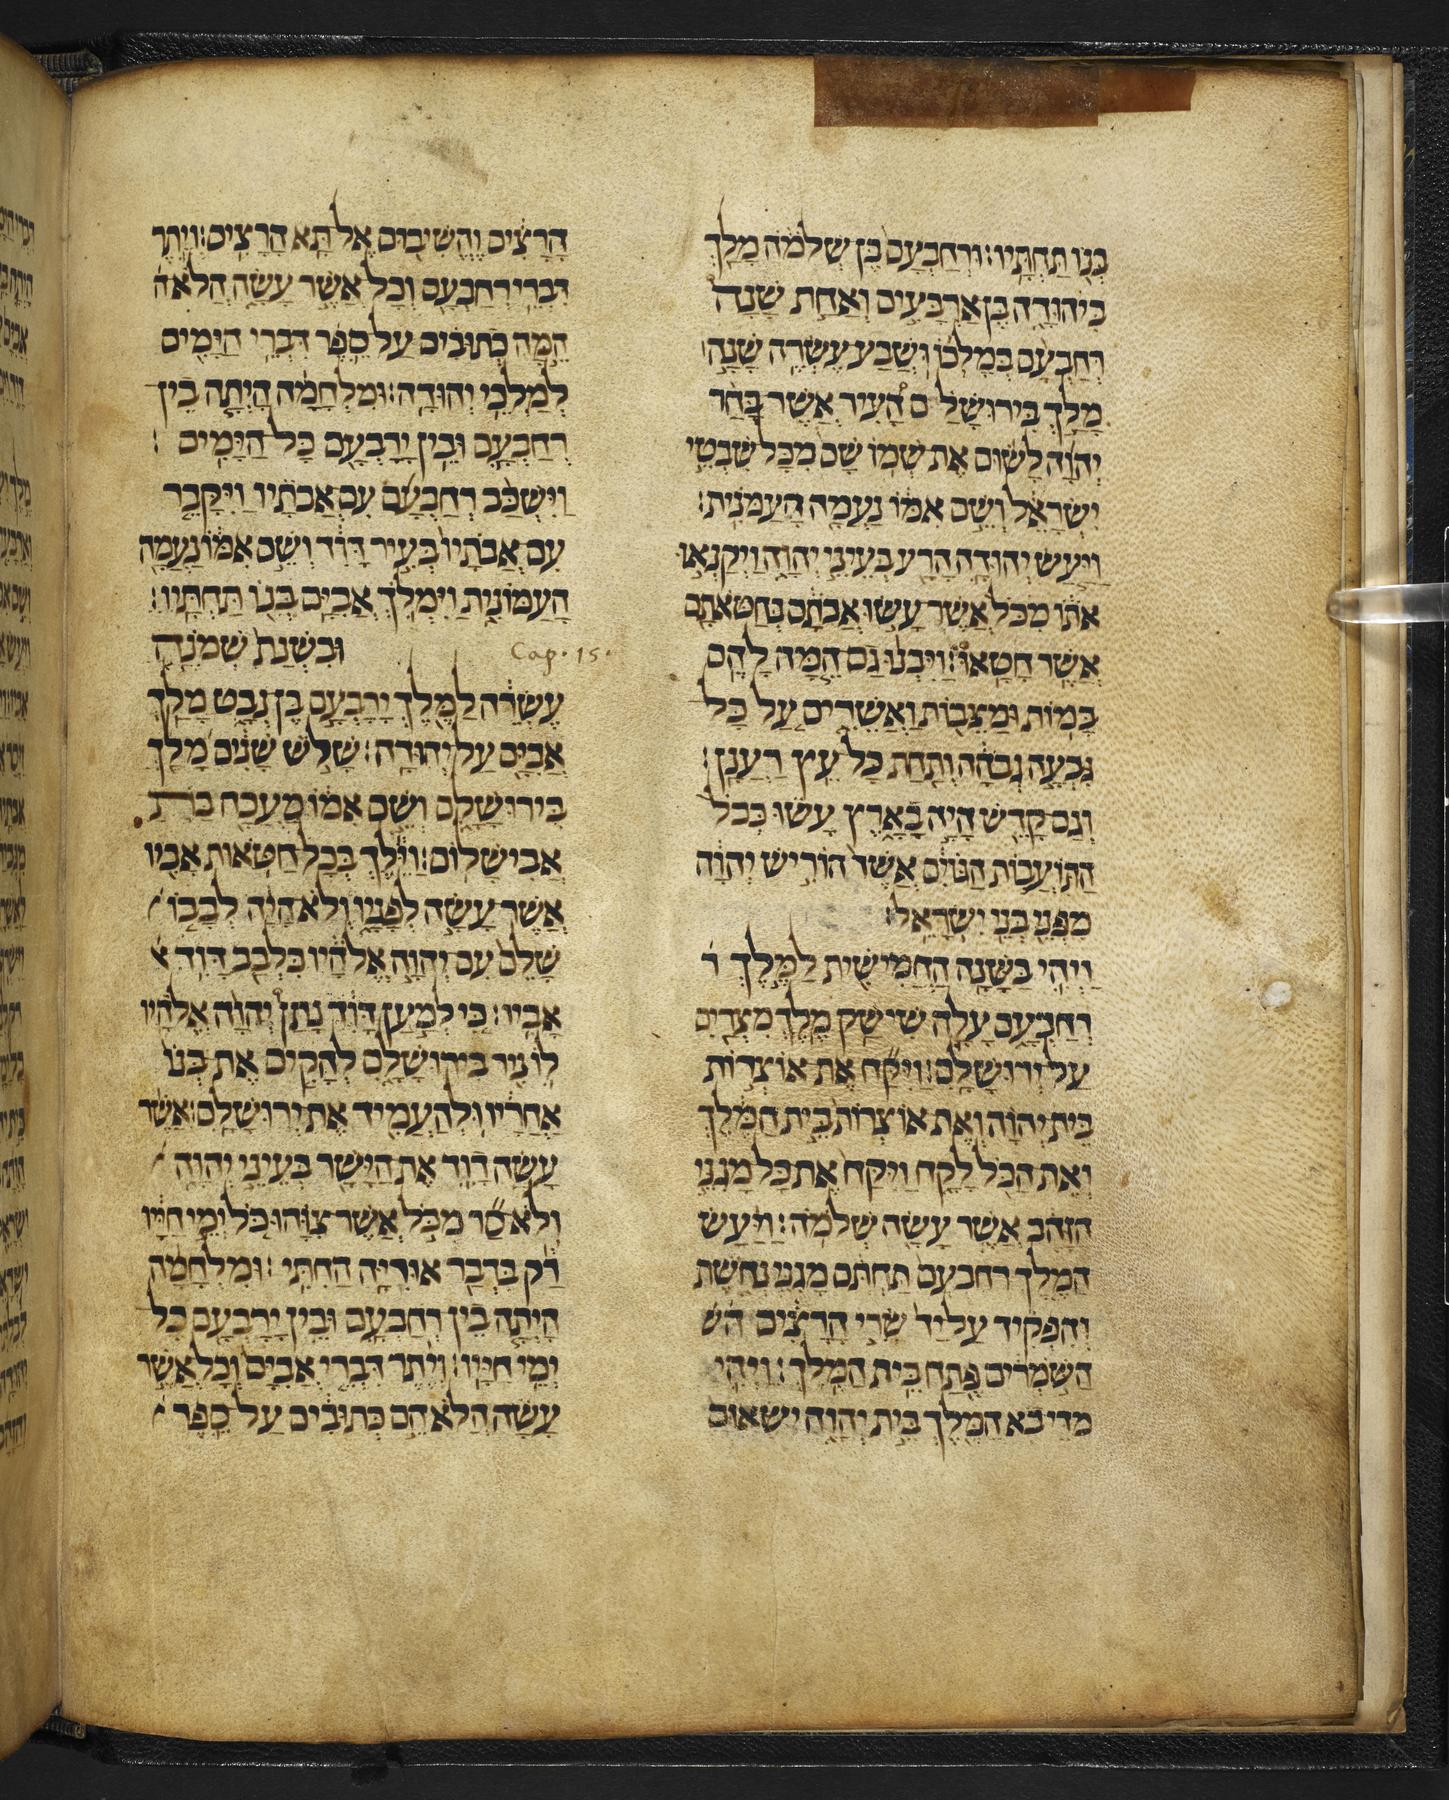 בְּנ֖וֹ תַּחְתָּֽיו׃ וּרְחַבְעָם֙ בֶּן שְׁלֹמֹ֔ה מָלַ֖ךְ
בִּיהוּדָ֑ה בֶּן אַרְבָּעִ֣ים וְאַחַ֣ת שָׁנָה֩
רְחַבְעָ֨ם בְּמָלְכ֜וֹ וּֽשֲׁבַ֨ע עֶשְׂרֵ֥ה שָׁנָ֣ה׀
מָלַ֣ךְ בִּירוּשָׁלַ ֗ם הָ֠עִיר אֲשֶׁר בָּחַ֨ר
יְהוָ֜ה לָשׂ֨וּם אֶת שְׁמ֥וֹ שָׁם֙ מִכָּל שִׁבְטֵ֣י
יִשְׂרָאֵ֔ל וְשֵׁ֣ם אִמּ֔וֹ נַעֲמָ֖ה הָעַמֹּנִֽית׃
וַיַּ֧עַשׂ יְהוּדָ֛ה הָרַ֖ע בְּעֵינֵ֣י יְהוָ֑ה וַיְקַנְא֣וּ
אֹת֗וֹ מִכֹּל֙ אֲשֶׁ֣ר עָשׂ֣וּ אֲבֹתָ֔ם בְּחַטֹּאתָ֖ם
אֲשֶׁ֥ר חָטָֽאוּ׃ וַיִּבְנ֨וּ גַם הֵ֧מָּה לָהֶ֛ם
בָּמ֥וֹת וּמַצֵּב֖וֹת וַאֲשֵׁרִ֑ים עַ֚ל כָּל
גִּבְעָ֣ה גְבֹהָ֔ה וְתַ֖חַת כָּל עֵ֥ץ רַעֲנָֽן׃
וְגַם קָדֵ֖שׁ הָיָ֣ה בָאָ֑רֶץ עָשׂ֕וּ כְּכֹל֙
הַתּוֹעֲבֹ֣ת הַגּוֹיִ֔ם אֲשֶׁר֙ הוֹרִ֣ישׁ יְהוָ֔ה
מִפְּנֵ֖י בְּנֵ֥י יִשְׂרָאֵֽל׃
וַיְהִ֛י בַּשָּׁנָ֥ה הַחֲמִישִׁ֖ית לַמֶּ֣לֶךְ ר
רְחַבְעָ֑ם עָלָ֛ה שִׁישַׁ֥ק מֶֽלֶךְ מִצְרַ֖יִם
עַל יְרוּשָׁלָֽם׃ וַיִּקַּ֞ח אֶת אוֹצְר֣וֹת
בֵּית יְהוָ֗ה וְאֶת אֽוֹצְרוֹת֙ בֵּ֣ית הַמֶּ֔לֶךְ
וְאֶת הַכֹּ֖ל לָקָ֑ח וַיִּקַּח֙ אֶת כָּל מָגִנֵּ֣י
הַזָּהָ֔ב אֲשֶׁ֥ר עָשָׂ֖ה שְׁלֹמֹֽה׃ וַיַּ֨עַשׂ
הַמֶּ֤לֶךְ רְחַבְעָם֙ תַּחְתָּ֔ם מָגִנֵּ֖י נְחֹ֑שֶׁת
וְהִפְקִ֗יד עַל יַד֙ שָׂרֵ֣י הָרָצִ֔ים הש
הַשֹּׁ֣מְרִ֔ים פֶּ֖תַח בֵּ֥ית הַמֶּֽלֶךְ׃ וַיְהִ֛י
מִדֵּי בֹ֥א הַמֶּ֖לֶךְ בֵּ֣ית יְהוָ֑ה יִשָּׂאוּם֙
הָֽרָצִ֔ים וֶהֱשִׁיב֖וּם אֶל תָּ֥א הָרָצִֽים׃ וְיֶ֛תֶר
דִּבְרֵ֥י רְחַבְעָ֖ם וְכָל אֲשֶׁ֣ר עָשָׂ֑ה הֲלֹא
הֵ֣מָּה כְתוּבִ֗ים עַל סֵ֛פֶר דִּבְרֵ֥י הַיָּמִ֖ים
לְמַלְכֵ֥י יְהוּדָֽה׃ וּמִלְחָמָ֨ה הָיְתָ֧ה בֵין
רְחַבְעָ֛ם וּבֵ֥ין יָרָבְעָ֖ם כָּל הַיָּמִֽים ׃
וַיִּשְׁכַּ֨ב רְחַבְעָ֜ם עִם אֲבֹתָ֗יו וַיִּקָּבֵ֤ר
עִם אֲבֹתָיו֙ בְּעִ֣יר דָּוִ֔ד וְשֵׁ֣ם אִמּ֔וֹ נַעֲמָ֖ה
הָעַמּוֹנִ֑ית וַיִּמְלֹ֛ךְ אֲבִיָּ֥ם בְּנ֖וֹ תַּחְתָּֽיו׃
Cap. 15. וּבִשְׁנַת֙ שְׁמֹנֶ֣ה
עֶשְׂרֵ֔ה לַמֶּ֖לֶךְ יָרָבְעָ֣ם בֶּן נְבָ֑ט מָלַ֥ךְ
אֲבִיָּ֖ם עַל יְהוּדָֽה׃ שָׁלֹ֣שׁ שָׁנִ֔ים מָלַ֖ךְ
בִּירוּשָׁלָ֑ם וְשֵׁ֣ם אִמּ֔וֹ מַעֲכָ֖ה בַּת
אֲבִישָׁלֽוֹם׃ וַיֵּ֕לֶךְ בְּכָל חַטֹּ֥אות אָבִ֖יו
אֲשֶׁר עָשָׂ֣ה לְפָנָ֑יו וְלֹא הָיָ֨ה לְבָב֤וֹ
שָׁלֵם֙ עִם יְהוָ֣ה אֱלֹהָ֔יו כִּלְבַ֖ב דָּוִ֥ד
אָבִֽיו׃ כִּ֚י לְמַ֣עַן דָּוִ֔ד נָתַן֩ יְהוָ֨ה אֱלֹהָ֥יו
ל֛וֹ נִ֖יר בִּירוּשָׁלָ֑ם לְהָקִ֤ים אֶת בְּנוֹ֙
אַחֲרָ֔יו וּֽלְהַעֲמִ֖יד אֶת יְרוּשָׁלָֽם׃ אֲשֶׁ֨ר
עָשָׂ֥ה דָוִ֛ד אֶת הַיָּשָׁ֖ר בְּעֵינֵ֣י יְהוָ֑ה
וְלֹא סָ֞ר מִכֹּ֣ל אֲשֶׁר צִוָּ֗הוּ כֹּ֚ל יְמֵ֣י חַיָּ֔יו
רַ֕ק בִּדְבַ֖ר אוּרִיָּ֥ה הַחִתִּֽי ׃ וּמִלְחָמָ֨ה
הָיְתָ֧ה בֵין רְחַבְעָ֛ם וּבֵ֥ין יָרָבְעָ֖ם כָּל
יְמֵ֥י חַיָּֽיו׃ וְיֶ֨תֶר דִּבְרֵ֤י אֲבִיָּם֙ וְכָל אֲשֶׁ֣ר
עָשָׂ֔ה הֲלֹֽא הֵ֣ם כְּתוּבִ֗ים עַל סֵ֛פֶר